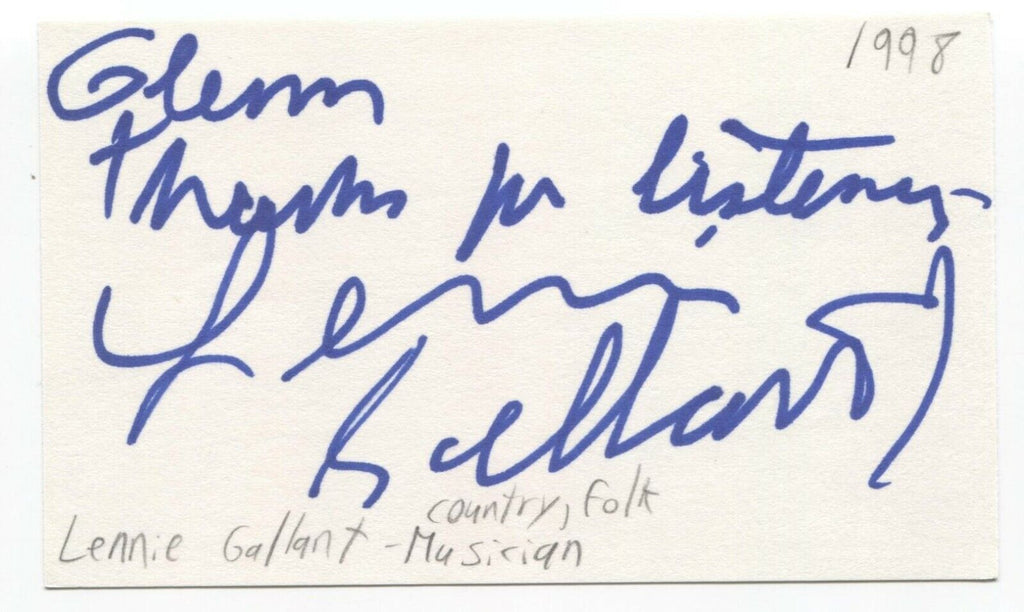 1998
Glenn
Thanks for listening
Lennie
Gallant
country, Folk
Lennie Gallant - Musician